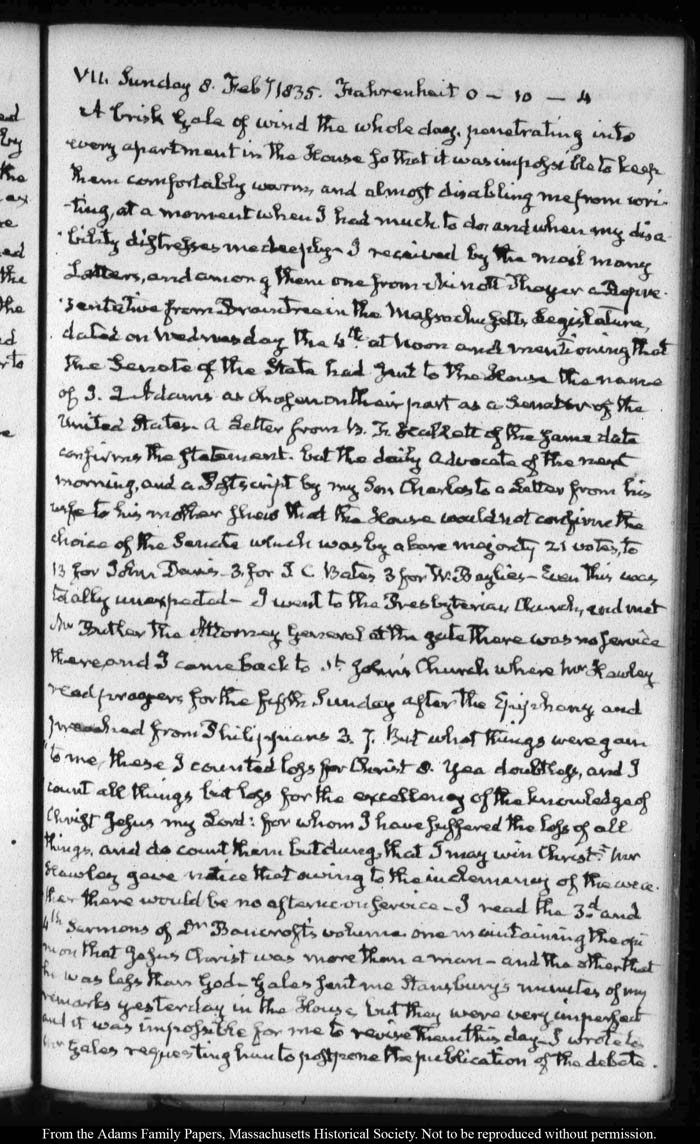 VII. Sunday 8. Feby 1835. Fahrenheit 0 — 10 — 4
A brisk Gale of wind the whole day, penetrating into
every apartment in the House so that it was impossible to keep
them comfortably warm, and almost disabling me from wri-
-ting, at a moment when I had much to do, and when my disa-
-bility distresses me deeply. I received by the mail many
Letters, and among them one from Minott Thayer a Repre-
-sentative from Braintree in the Massachusetts Legislature,
dated on Wednesday the 4th at Noon and mentioning that
the Senate of the State had sent to the House the name
of J. Q Adams as chosen on their part as a Senator of the
United States. A Letter from B. F. Hallett of the same date
confirms the statement. but the daily Advocate of the next
morning, and a Postscript by my Son Charles to a Letter from his
wife to his mother shew that the House would not confirm the
choice of the Senate which was by a bare majority 21 votes, to
13 for John Davis — 3 for I. C. Bates 3 for W. Baylies — Even this was
totally unexpected — I went to the Presbyterian Church, and met
Mr Butler the Attorney General at the gate there was no service
there, and I came back to St. John's Church where Mr Hawley
read prayers for the fifth Sunday after the Epiphany and
preached from Philippians 3. 7. But what things were gain
to me, these I counted loss for Christ 8. Yea doubtless, and I
count all things but loss for the excellency of the knowledge of
Christ Jesus my Lord: for whom I have suffered the loss of all
things, and do count them but dung, that I may win Christ. Mr
Hawley gave notice that owing to the inclemency of the wea-
ther there would be no afternoon service — I read the 3d and
4th Sermons of Dr Bancroft's volume. one maintaining the opi
nion that Jesus Christ was more than a man — and the other that
he was less than God — Gales sent me Stansbury's minutes of my
remarks yesterday in the House, but they were very imperfect
and it was impossible for me to revise them this day — I wrote to
Mr Gales requesting him to postpone the publication of the debate.
From the Adams Family Papers, Massachusetts Historical Society. Not to be reproduced without permission.